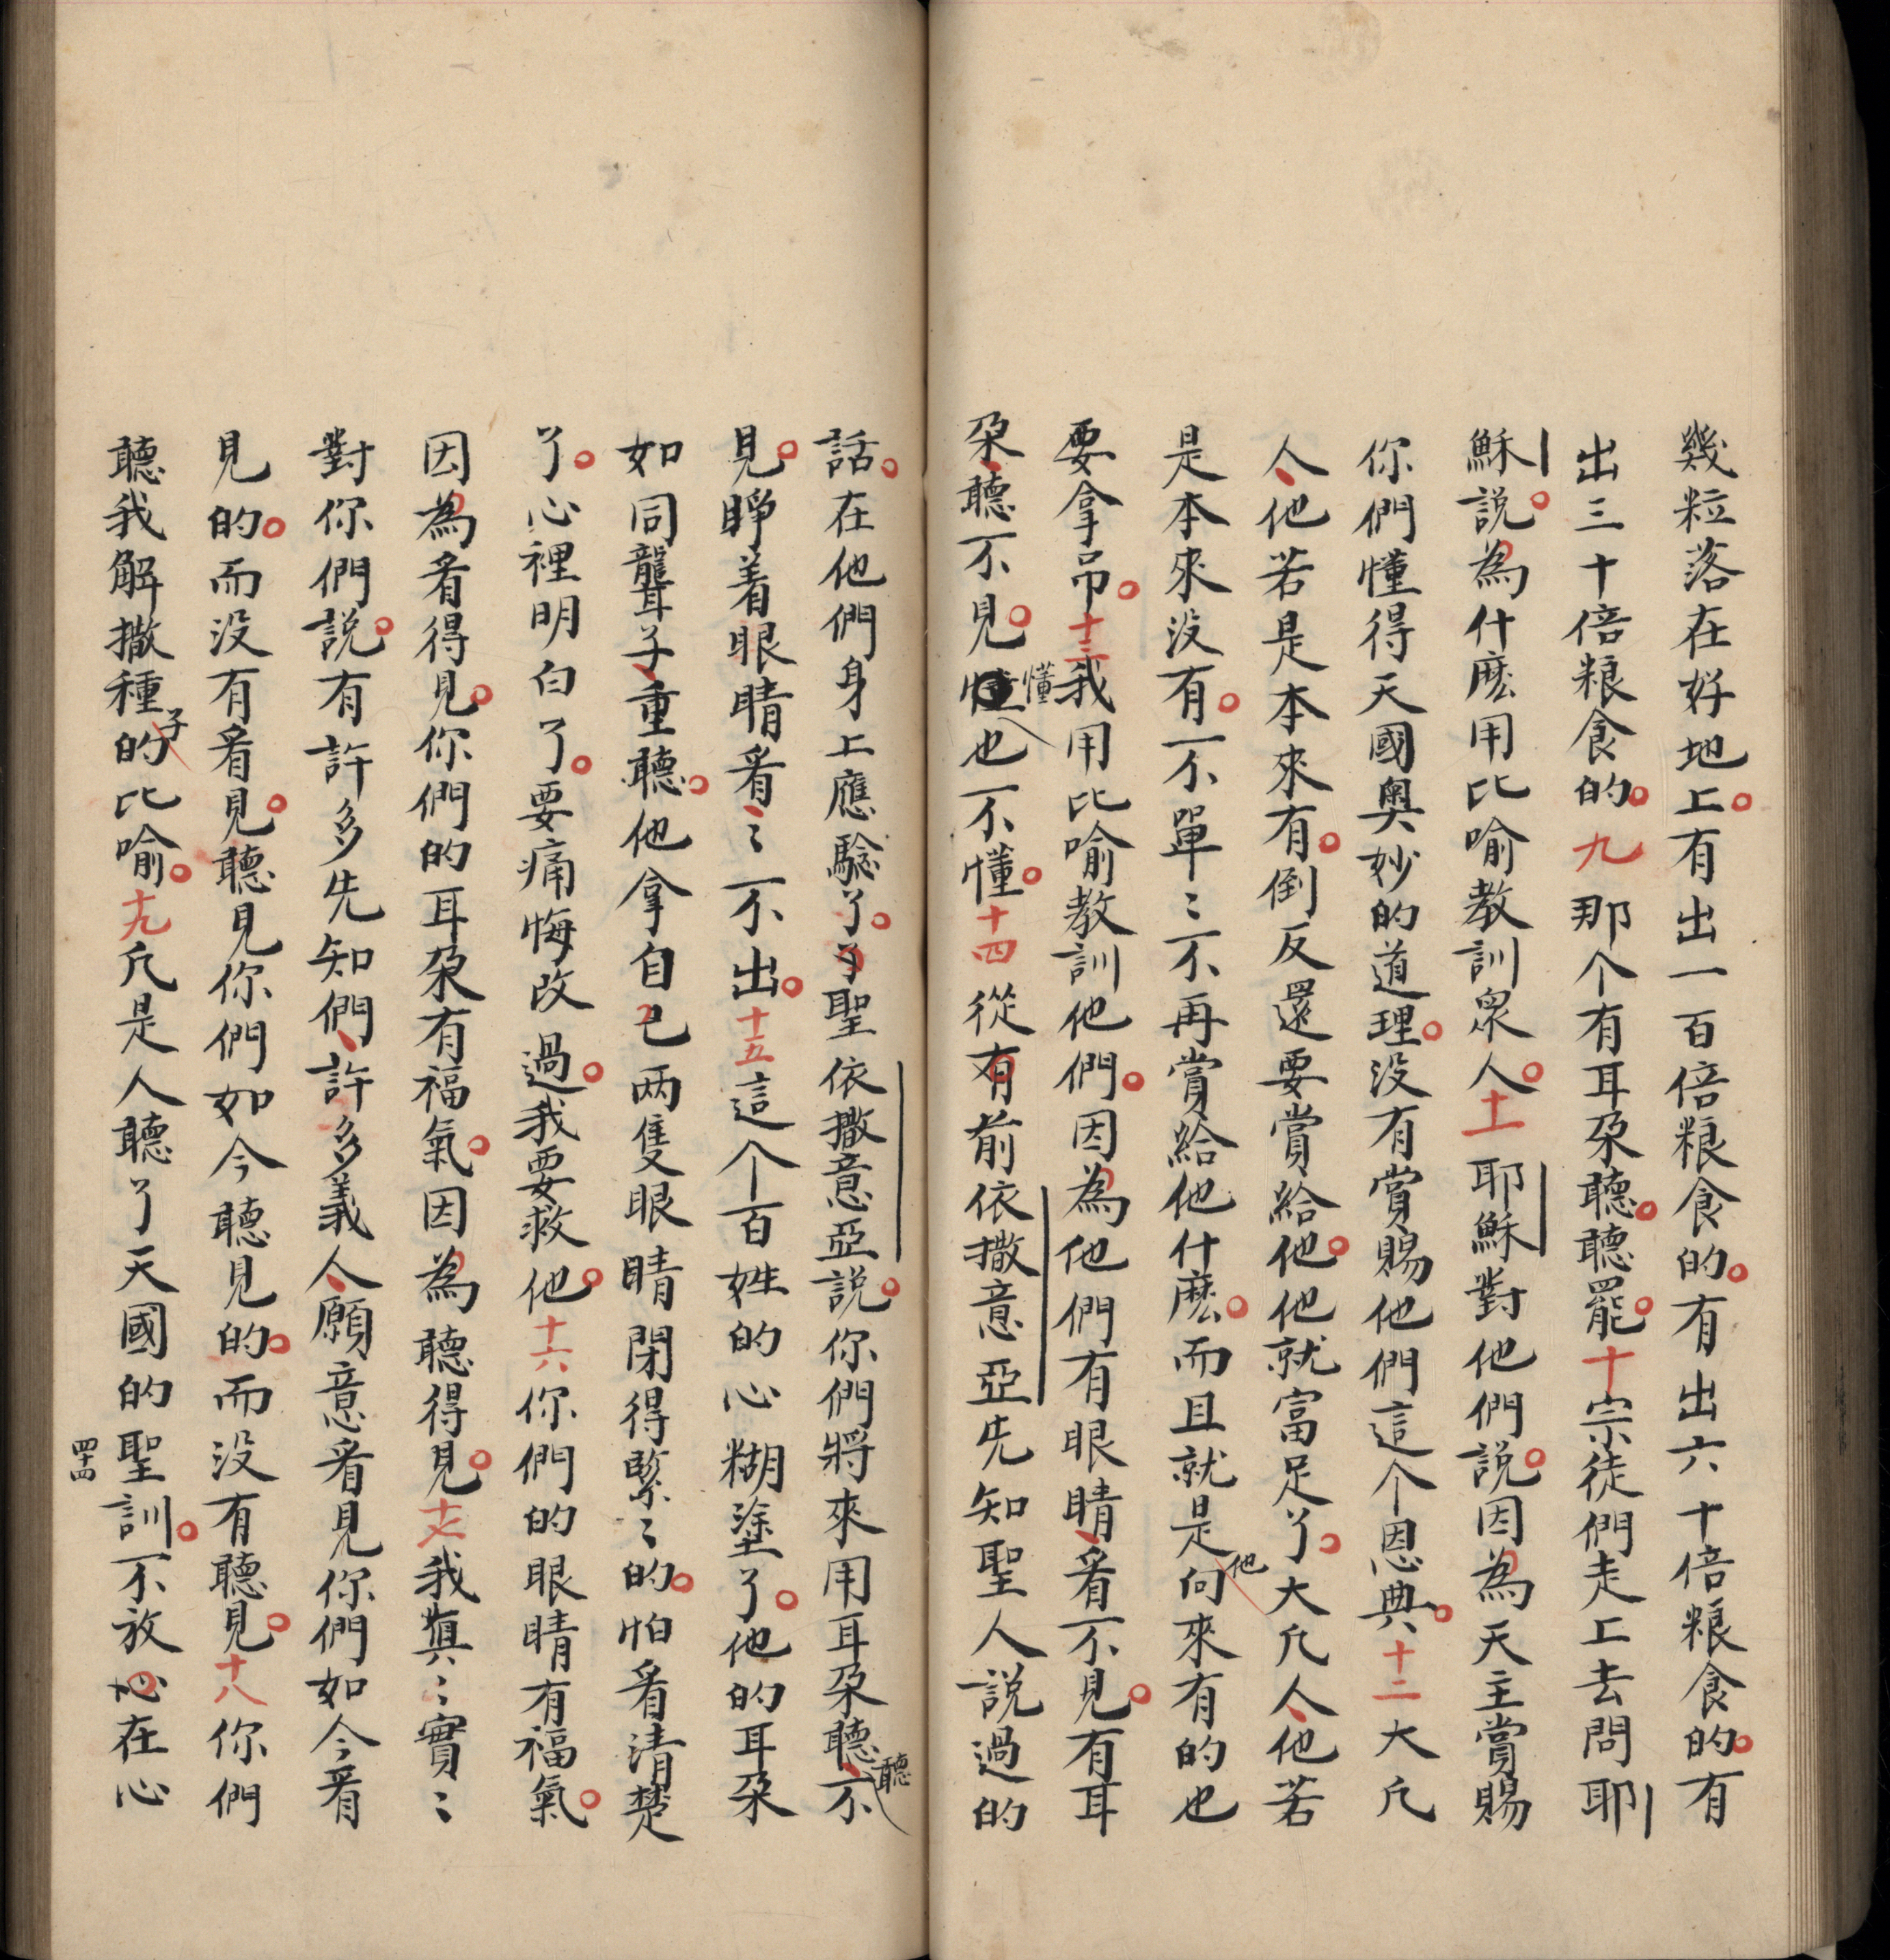 幾粒落在好地上。有出一百倍粮食的。有出六十倍粮食的。有
出三十倍粮食的。九那个有耳朶聽。聽罷。十宗徒們走上去問耶
穌說。為什麽用比喻教訓眾人。十一耶穌對他們說。因為天主賞賜
你們懂得天國奥妙的道理。没有賞賜他們這个恩典。十二大凡
人、他若是本來有。倒反還要賞給他。他就富足了。大凡人、他若
是本來没有。不單〻不再賞給他什麽。而且就是他向來有的也
要拿吊。十三我用比喻教訓他們。因為他們有眼睛、看不見。有耳
朶、聽不見。懂也不懂。十四從有前依撒意亞先知聖人說過的
話。在他們身上應騐了。聖依撒意亞說。你們將來用耳朶聽、聽不
見。睜着眼睛看、〻不出。十五這个百姓的心糊塗了。他的耳朶
如同聾子、重聽。他拿自己两隻眼睛閉得緊〻的。怕看清楚
了。心裡明白了。要痛悔改過。我要救他。十六你們的眼睛有福氣。
因為看得見。你們的耳朶有福氣。因為聽得見。十七我真〻實〻
對你們說。有許多先知們、許多義人、願意看見你們如今看
見的。而没有看見。聽見你們如今聽見的。而没有聽見。十八你們
聽我解撒種子的比喻。十九凡是人聽了天國的聖訓。不放在心
四十四